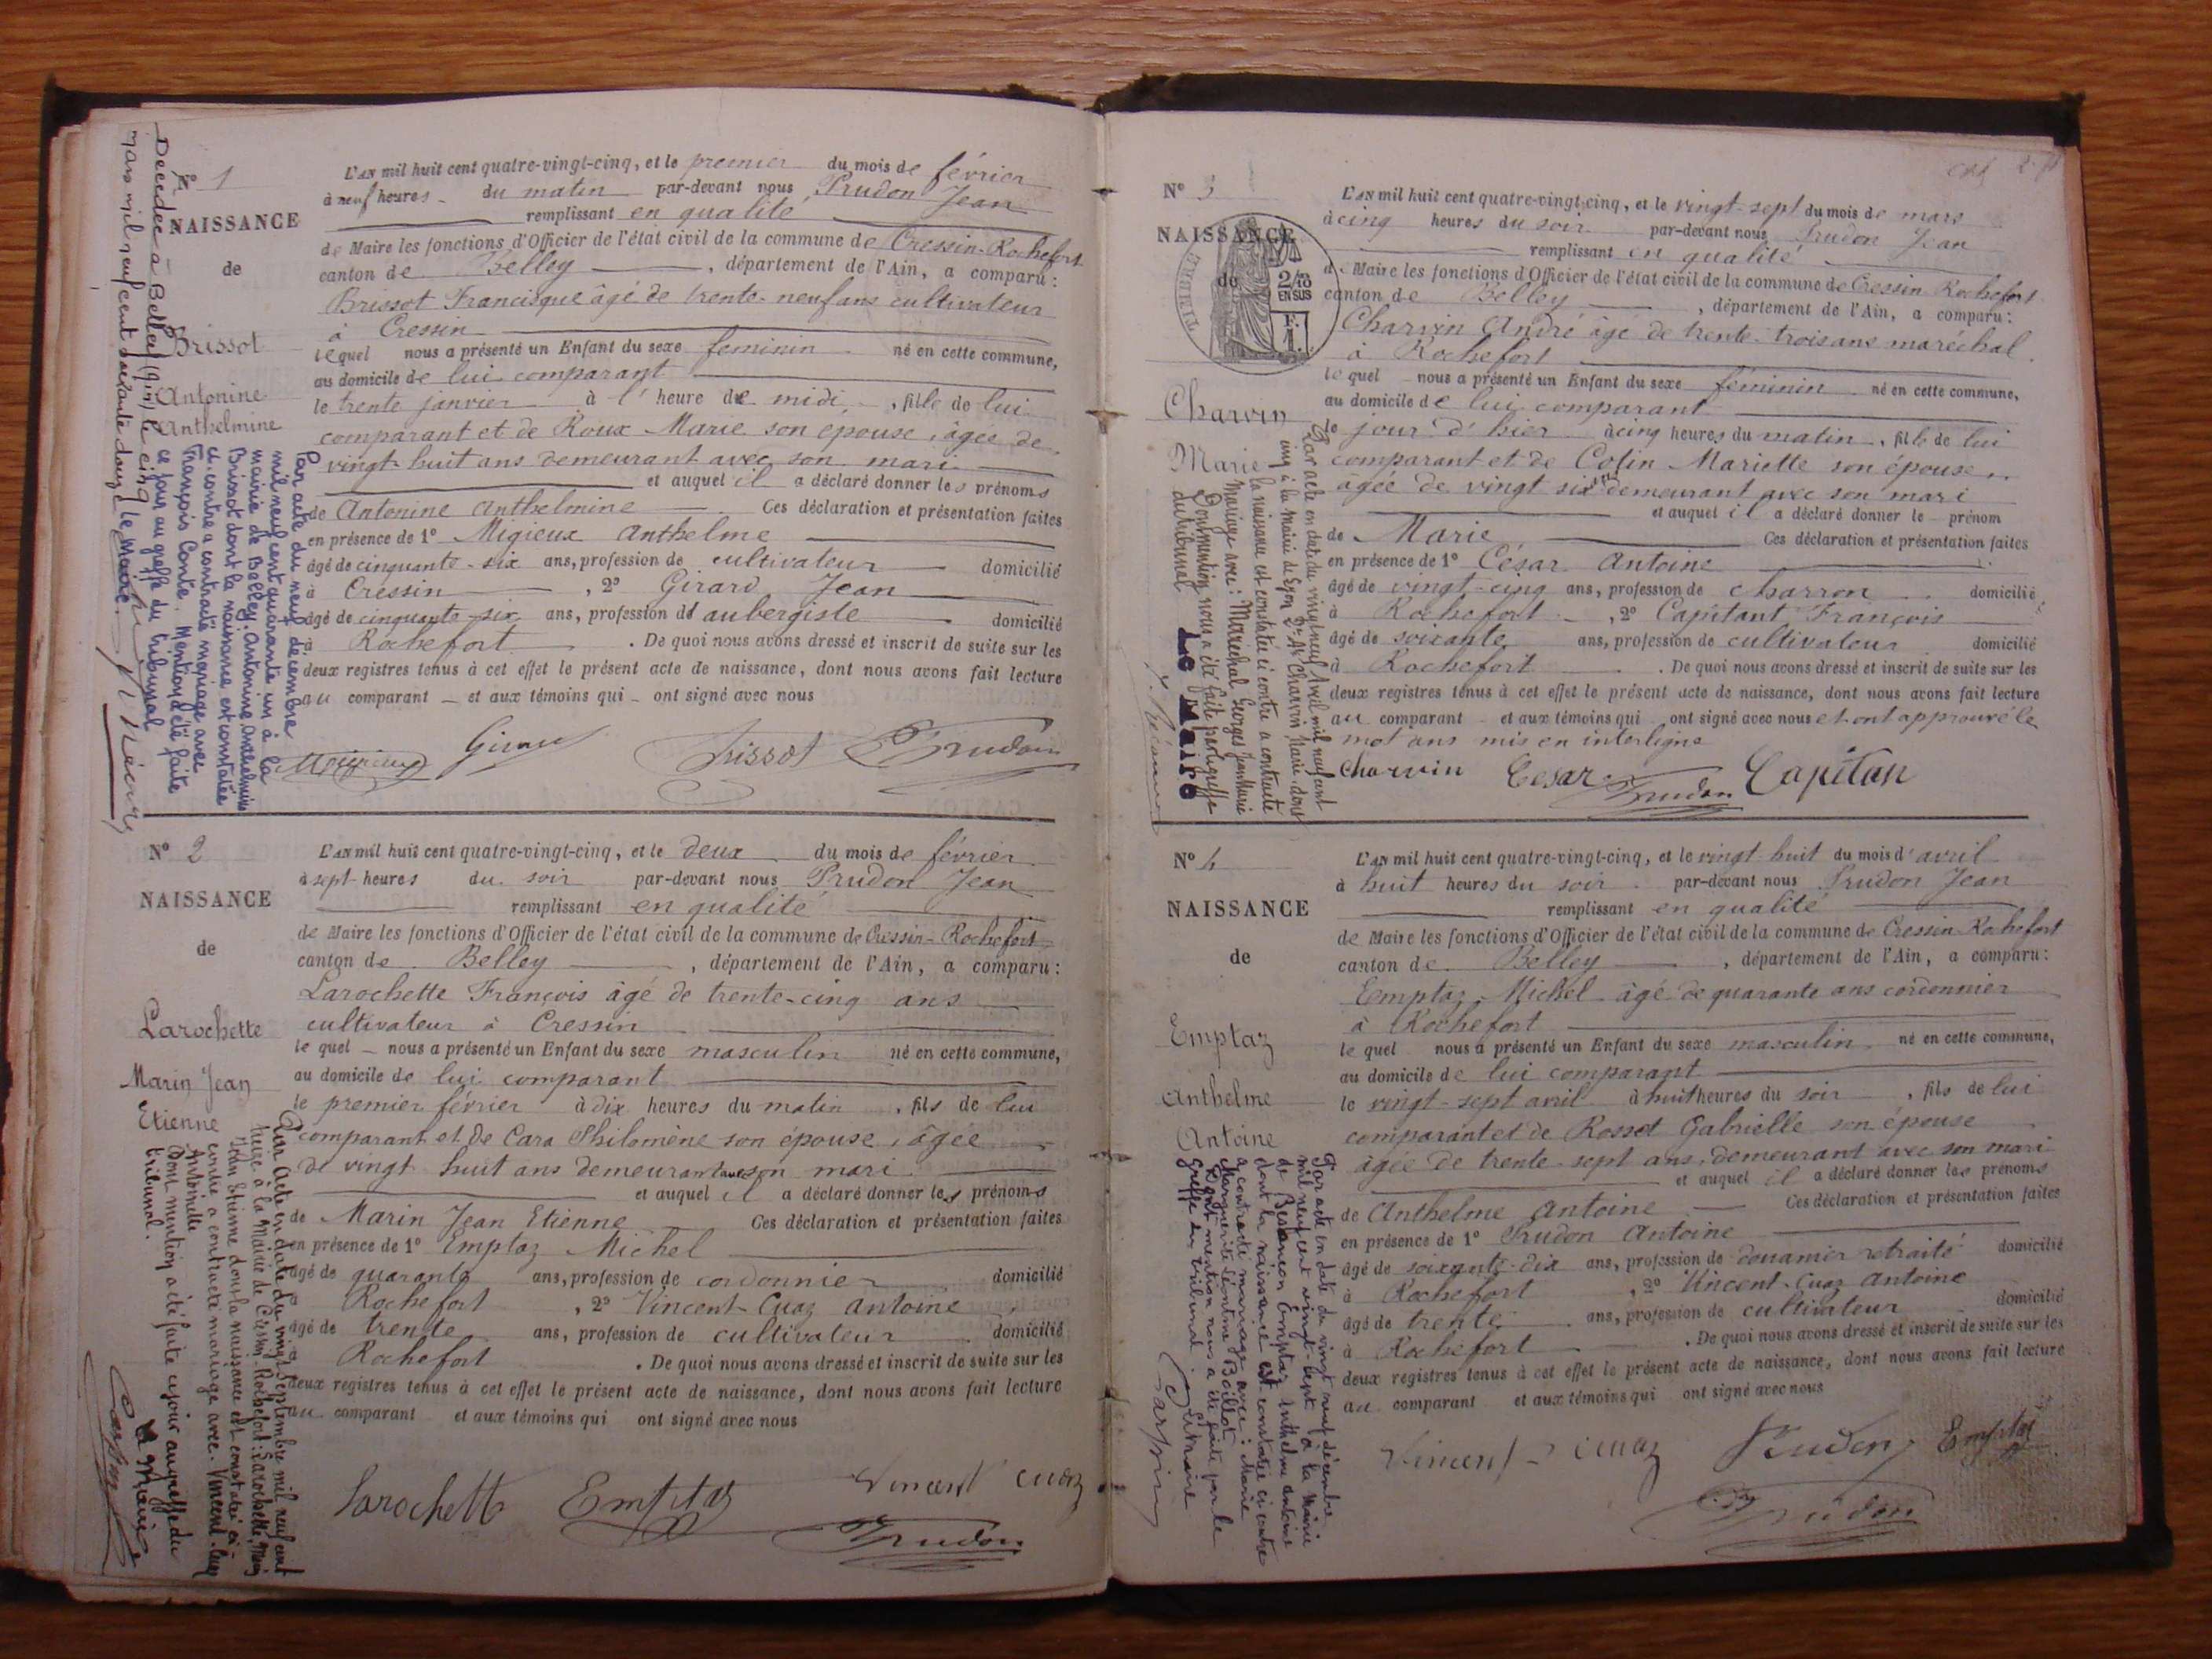 N° 1
NAISSANCE
de
Brissot
Antonine
Anthelmine
L'AN mil huit cent quatre-vingt-cinq, et le premier du mois de février
à neuf heures du matin par-devant nous Prudon Jean
remplissant en qualité
de Maire les fonctions d'Officier de l'état civil de la commune de Cressin-Rochefort
canton de Belley, département de l'Ain, a comparu:
Brissot Francisque âgé de trente-neuf ans cultivateur
à Cressin
lequel nous a présenté un Enfant du sexe feminin né en cette commune,
au domicile de lui comparant
le trente janvier à l' heure de midi, fille de lui
comparant et de Roux Marie son épouse, âgée de
vingt-huit ans demeurant avec son mari
et auquel il a déclaré donner les prénoms
de Antonine Anthelmine Ces déclaration et présentation faites
en présence de 1° Migieux Anthelme
âgé de cinquante-six ans, profession de cultivateur domicilié
à Cressin, 2° Girard Jean
âgé de cinquante-six ans, profession de aubergiste domicilié
à Rochefort. De quoi nous avons dressé et inscrit de suite sur les
deux registres tenus à cet effet le présent acte de naissance, dont nous avons fait lecture
au comparant et aux témoins qui ont signé avec nous
Migieux Girard Brissot Prudon
Par acte du neuf décembre
mil neuf cent quarante un à la
mairie de Belley, Antonine Anthelmine
Brissot dont la naissance est constatée
ci-contre a contracté mariage avec
François Conte. Mention a été faite
ce jour au greffe du tribunal
Décédée à Belley (Ain) le cinq
mars mil neuf cent soixante douze le Maire.
N° 2
NAISSANCE
de
Larochette
Marin Jean
Etienne
L'AN mil huit cent quatre-vingt-cinq, et le deux du mois de février
à sept heures du soir par-devant nous Prudon Jean
remplissant en qualité
de Maire les fonctions d'Officier de l'état civil de la commune de Cressin-Rochefort
canton de Belley, département de l'Ain, a comparu:
Larochette François âgé de trente-cinq ans
cultivateur à Cressin
le quel nous a présenté un Enfant du sexe masculin né en cette commune,
au domicile de lui comparant
le premier février à dix heures du matin, fils de lui
comparant et de Cara Philomène son épouse, âgée
de vingt huit ans demeurant avec son mari
et auquel il a déclaré donner les prénoms
de Marin Jean Etienne Ces déclaration et présentation faites
en présence de 1° Emptaz Michel
âgé de quarante ans, profession de cordonnier domicilié
à Rochefort, 2° Vincent-Cuaz Antoine
âgé de trente ans, profession de cultivateur domicilié
à Rochefort. De quoi nous avons dressé et inscrit de suite sur les
deux registres tenus à cet effet le présent acte de naissance, dont nous avons fait lecture
au comparant et aux témoins qui ont signé avec nous
Larochette Emptaz Vincent Cuaz
Prudon
Par acte en date du vingt septembre mil neuf cent
onze à la Mairie de Cressin-Rochefort: Larochette, Marin
Jean Etienne dont la naissance est constatée ci-
contre a contracté mariage avec Vincent-Cuaz
Antoinette
Dont mention a été faite ce jour au greffe du
tribunal.
Le Maire
N° 3
NAISSANCE
de
TIMBRE
2/10
EN SUS
F.
1.
Charvin
Marie
L'AN mil huit cent quatre-vingt-cinq, et le vingt-sept du mois de mars
à cinq heures du soir par-devant nous Prudon Jean
remplissant en qualité
de Maire les fonctions d'Officier de l'état civil de la commune de Cressin Rochefort
canton de Belley, département de l'Ain, a comparu:
Charvin André âgé de trente-trois ans maréchal
à Rochefort
le quel nous a présenté un Enfant du sexe féminin né en cette commune,
au domicile de lui comparant
le jour d'hier à cinq heures du matin, fille de lui
comparant et de Colin Mariette son épouse
âgée de vingt six ans demeurant avec son mari
et auquel il a déclaré donner le prénom
de Marie Ces déclaration et présentation faites
en présence de 1° César Antoine
âgé de vingt-cinq ans, profession de charron domicilié
à Rochefort, 2° Capitant François
âgé de soixante ans, profession de cultivateur domicilié
à Rochefort. De quoi nous avons dressé et inscrit de suite sur les
deux registres tenus à cet effet le présent acte de naissance, dont nous avons fait lecture
au comparant et aux témoins qui ont signé avec nous et ont approuvé le
mot ans mis en interligne
Charvin Cesar Prudon Capitan
Par acte en date du vingt neuf Avril mil neuf cent
cinq à la mairie de Lyon 2e Ar Charvin Marie, dont
la naissance est constatée ci contre a contracté
Mariage avec: Maréchal Georges Jean Marie
Dont mention nous a été faite par le greffe
du tribunal Le Maire
N° 4
NAISSANCE
de
Emptaz
Anthelme
Antoine
L'AN mil huit cent quatre-vingt-cinq, et le vingt-huit du mois d'avril
à huit heures du soir par-devant nous Prudon Jean
remplissant en qualité
de Maire les fonctions d'Officier de l'état civil de la commune de Cressin-Rochefort
canton de Belley, département de l'Ain, a comparu:
Emptaz Michel âgé de quarante ans cordonnier
à Rochefort
le quel nous a présenté un Enfant du sexe masculin né en cette commune,
au domicile de lui comparant
le vingt-sept avril à huit heures du soir, fils de lui
comparant et de Rosset Gabrielle son épouse
âgée de trente-sept ans, demeurant avec son mari
et auquel il a déclaré donner les prénoms
de Anthelme Antoine Ces déclaration et présentation faites
en présence de 1° Prudon Antoine
âgé de soixante-dix ans, profession de douanier retraité domicilié
à Rochefort, 2° Vincent-Cuaz Antoine
âgé de trente ans, profession de cultivateur domicilié
à Rochefort. De quoi nous avons dressé et inscrit de suite sur les
deux registres tenus à cet effet le présent acte de naissance, dont nous avons fait lecture
au comparant et aux témoins qui ont signé avec nous
Vincent-Cuaz Prudon Emptaz
Prudon
Par acte en date du vingt neuf décembre
mil neuf cent vingt-sept à la Mairie
de Besançon Emptaz Anthelme Antoine
dont la naissance est constatée ci contre
a contracté mariage avec: Marie
Marguerite Léontine Boillot
Dont mention nous a été faite par le
greffe du tribunal. Le Maire